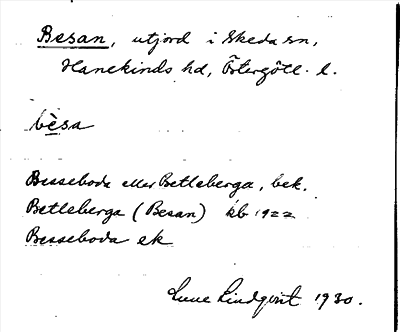 Besan, utjord i Skeda sn,
Hanekinds hd, Östergötl. l.
bèsa
Besseboda eller Betleberga, bek.
Betleberga (Besan) kb 1922
Besseboda ek
Sune Lindqvist 1930.